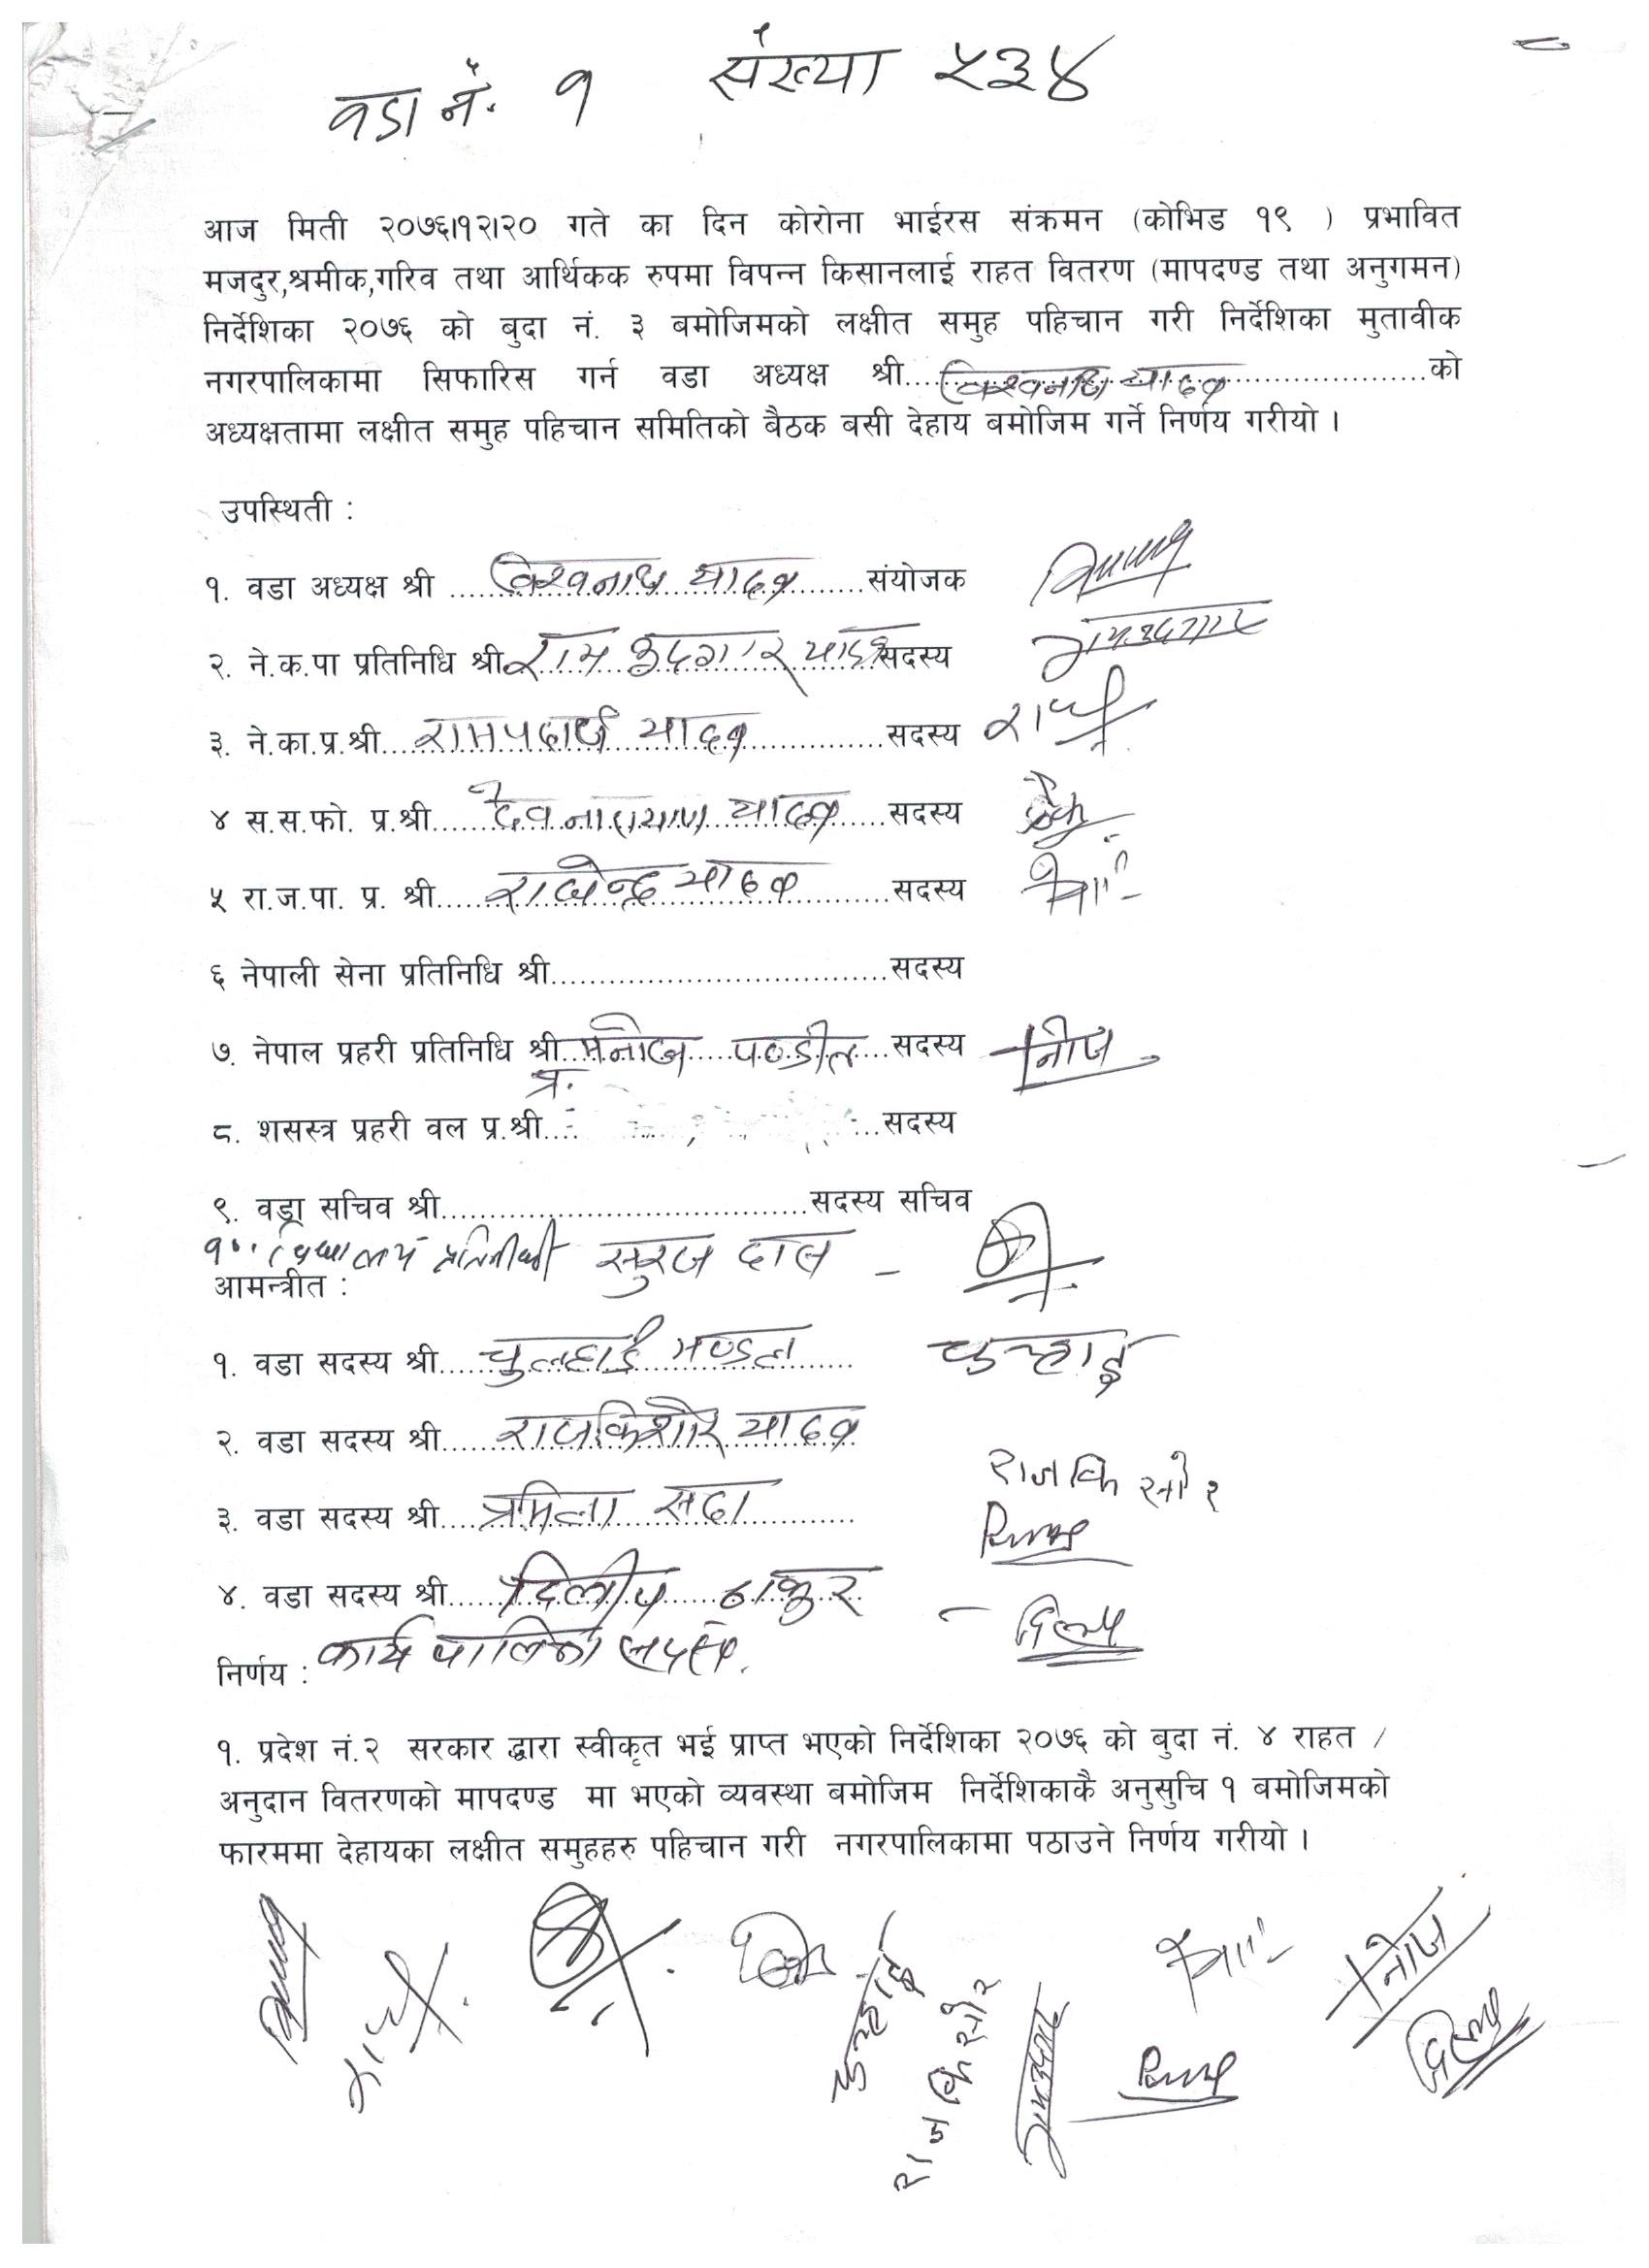 वडा नं. १ संख्या ५३४
आज मिती २०७६।१२।२० गते का दिन कोरोना भाईरस संक्रमन (कोभिड १९ ) प्रभावित
मजदुर,श्रमीक,गरिव तथा आर्थिकक रुपमा विपन्न किसानलाई राहत वितरण (मापदण्ड तथा अनुगमन)
निर्देशिका २०७६ को बुदा नं. ३ बमोजिमको लक्षीत समुह पहिचान गरी निर्देशिका मुतावीक
नगरपालिकामा सिफारिस गर्न वडा अध्यक्ष श्री....विश्वनाथ यादव....को
अध्यक्षतामा लक्षीत समुह पहिचान समितिको बैठक बसी देहाय बमोजिम गर्ने निर्णय गरीयो ।
उपस्थिती :
१. वडा अध्यक्ष श्री ....विश्वनाथ यादव....संयोजक
२. ने.क.पा प्रतिनिधि श्री..राम उदगार यादव सदस्य रामउदगार
३. ने.का.प्र.श्री....रामपदार्थ यादव....सदस्य
४ स.स.फो. प्र.श्री....देवनारायण यादव....सदस्य
५ रा.ज.पा. प्र. श्री....राजेन्द्र यादव....सदस्य
६ नेपाली सेना प्रतिनिधि श्री....................सदस्य
७. नेपाल प्रहरी प्रतिनिधि श्री...मनोज पण्डीत...सदस्य
८. शसस्त्र प्रहरी वल प्र.श्री.... ...सदस्य
९. वडा सचिव श्री....................सदस्य सचिव
१०. विद्यालय प्रतिनीधी सुरज दास -
आमन्त्रीत :
१. वडा सदस्य श्री....चुलहाई मण्डल....
२. वडा सदस्य श्री....राजकिशोर यादव
राजकिसोर
३. वडा सदस्य श्री....प्रमिला सदा....
४. वडा सदस्य श्री....दिलीप ठाकुर
निर्णय : कार्यपालिका सदस्य.
१. प्रदेश नं.२ सरकार द्धारा स्वीकृत भई प्राप्त भएको निर्देशिका २०७६ को बुदा नं. ४ राहत /
अनुदान वितरणको मापदण्ड मा भएको व्यवस्था बमोजिम निर्देशिकाकै अनुसुचि १ बमोजिमको
फारममा देहायका लक्षीत समुहहरु पहिचान गरी नगरपालिकामा पठाउने निर्णय गरीयो ।
राजकिसोर